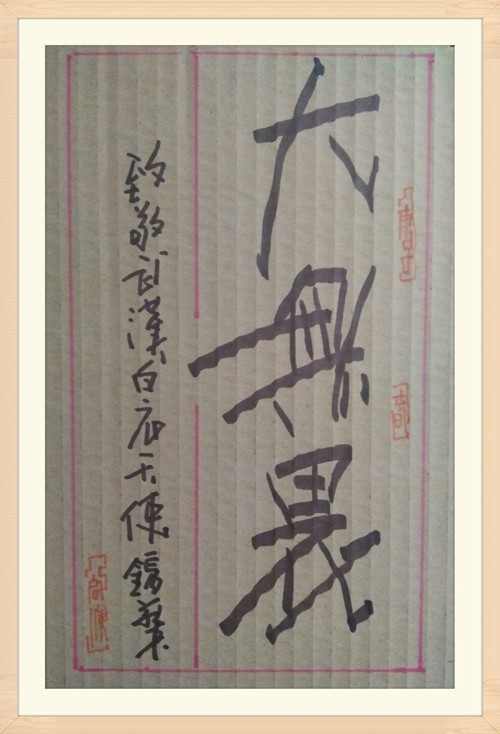 大無畏
致敬武漢白衣天使